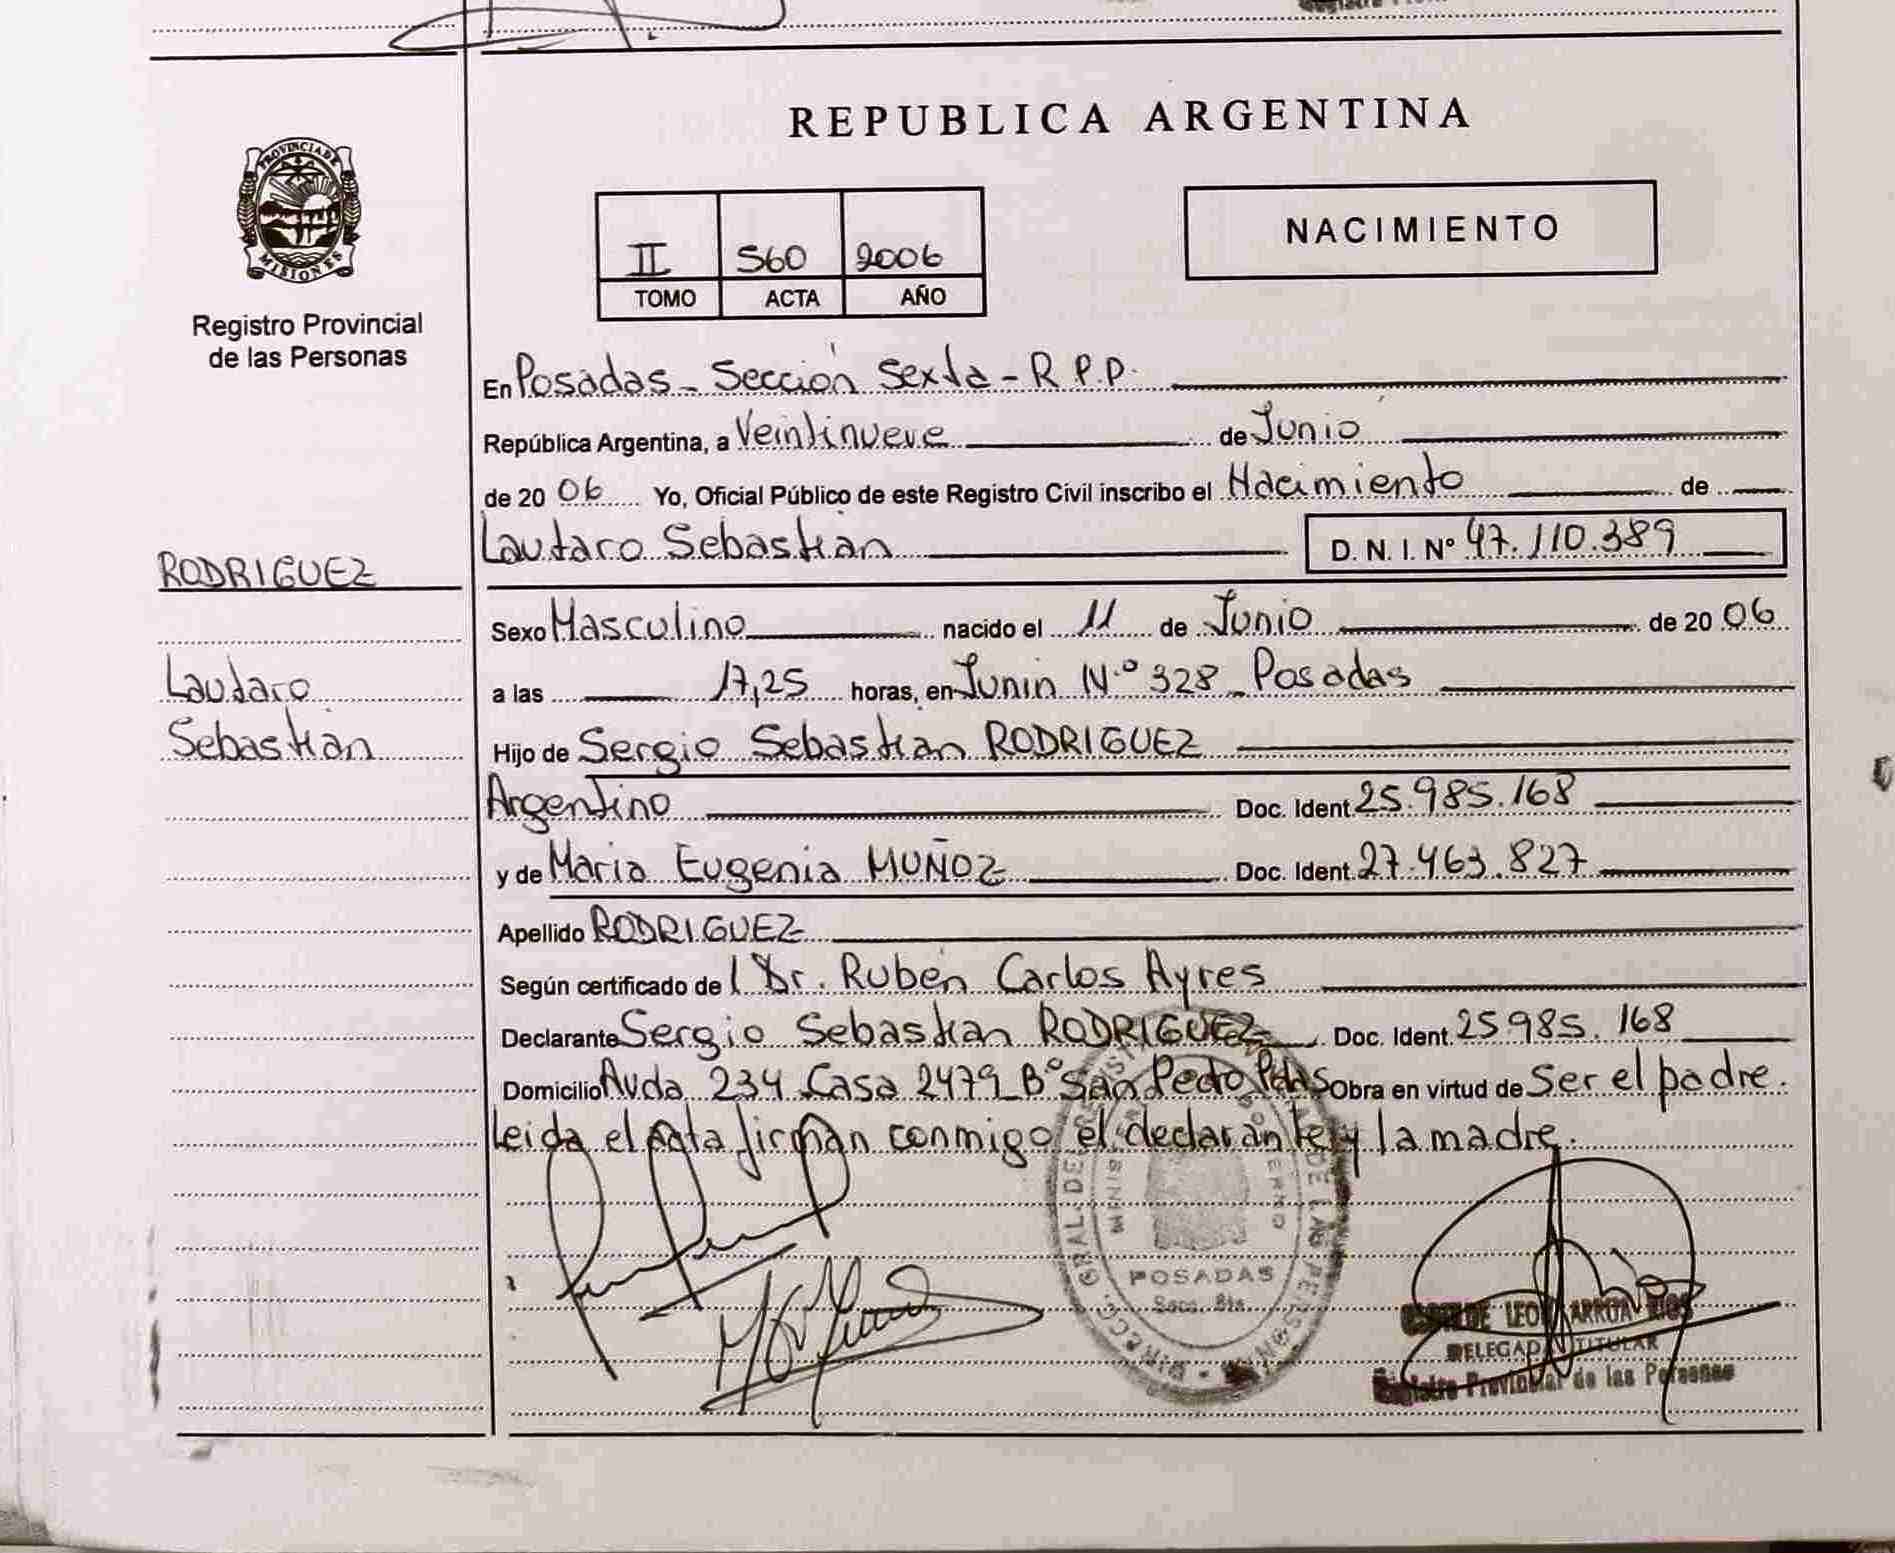 REPUBLICA ARGENTINA
PROVINCIA DE
MISIONES
Registro Provincial
de las Personas
II 560 2006
TOMO ACTA AÑO
NACIMIENTO
En Posadas - Sección Sexta - R.P.P.
República Argentina, a Veintinueve de Junio
de 20 06 Yo, Oficial Público de este Registro Civil inscribo el Nacimiento de
Lautaro Sebastián D. N. I. Nº 47.110.389
RODRIGUEZ
Sexo Masculino nacido el 11 de Junio de 20 06
Lautaro
Sebastián
a las 17,25 horas, en Junin N.º 328 Posadas
Hijo de Sergio Sebastián RODRIGUEZ
Argentino Doc. Ident. 25.985.168
y de Maria Eugenia MUÑOZ Doc. Ident. 27.463.827
Apellido RODRIGUEZ
Según certificado de l Dr. Rubén Carlos Ayres
Declarante Sergio Sebastian RODRIGUEZ Doc. Ident. 25985.168
Domicilio Avda 234 Casa 2479 Bº San Pedro Pdas Obra en virtud de Ser el padre.
Leida el acta firman conmigo el declarante y la madre.
DIRECC. GRAL. DE
DE LAS PERSONAS
POSADAS
Secc. 6ta.
DE LEON ARRUA RIOS
DELEGADA TITULAR
Registro Provincial de las Personas